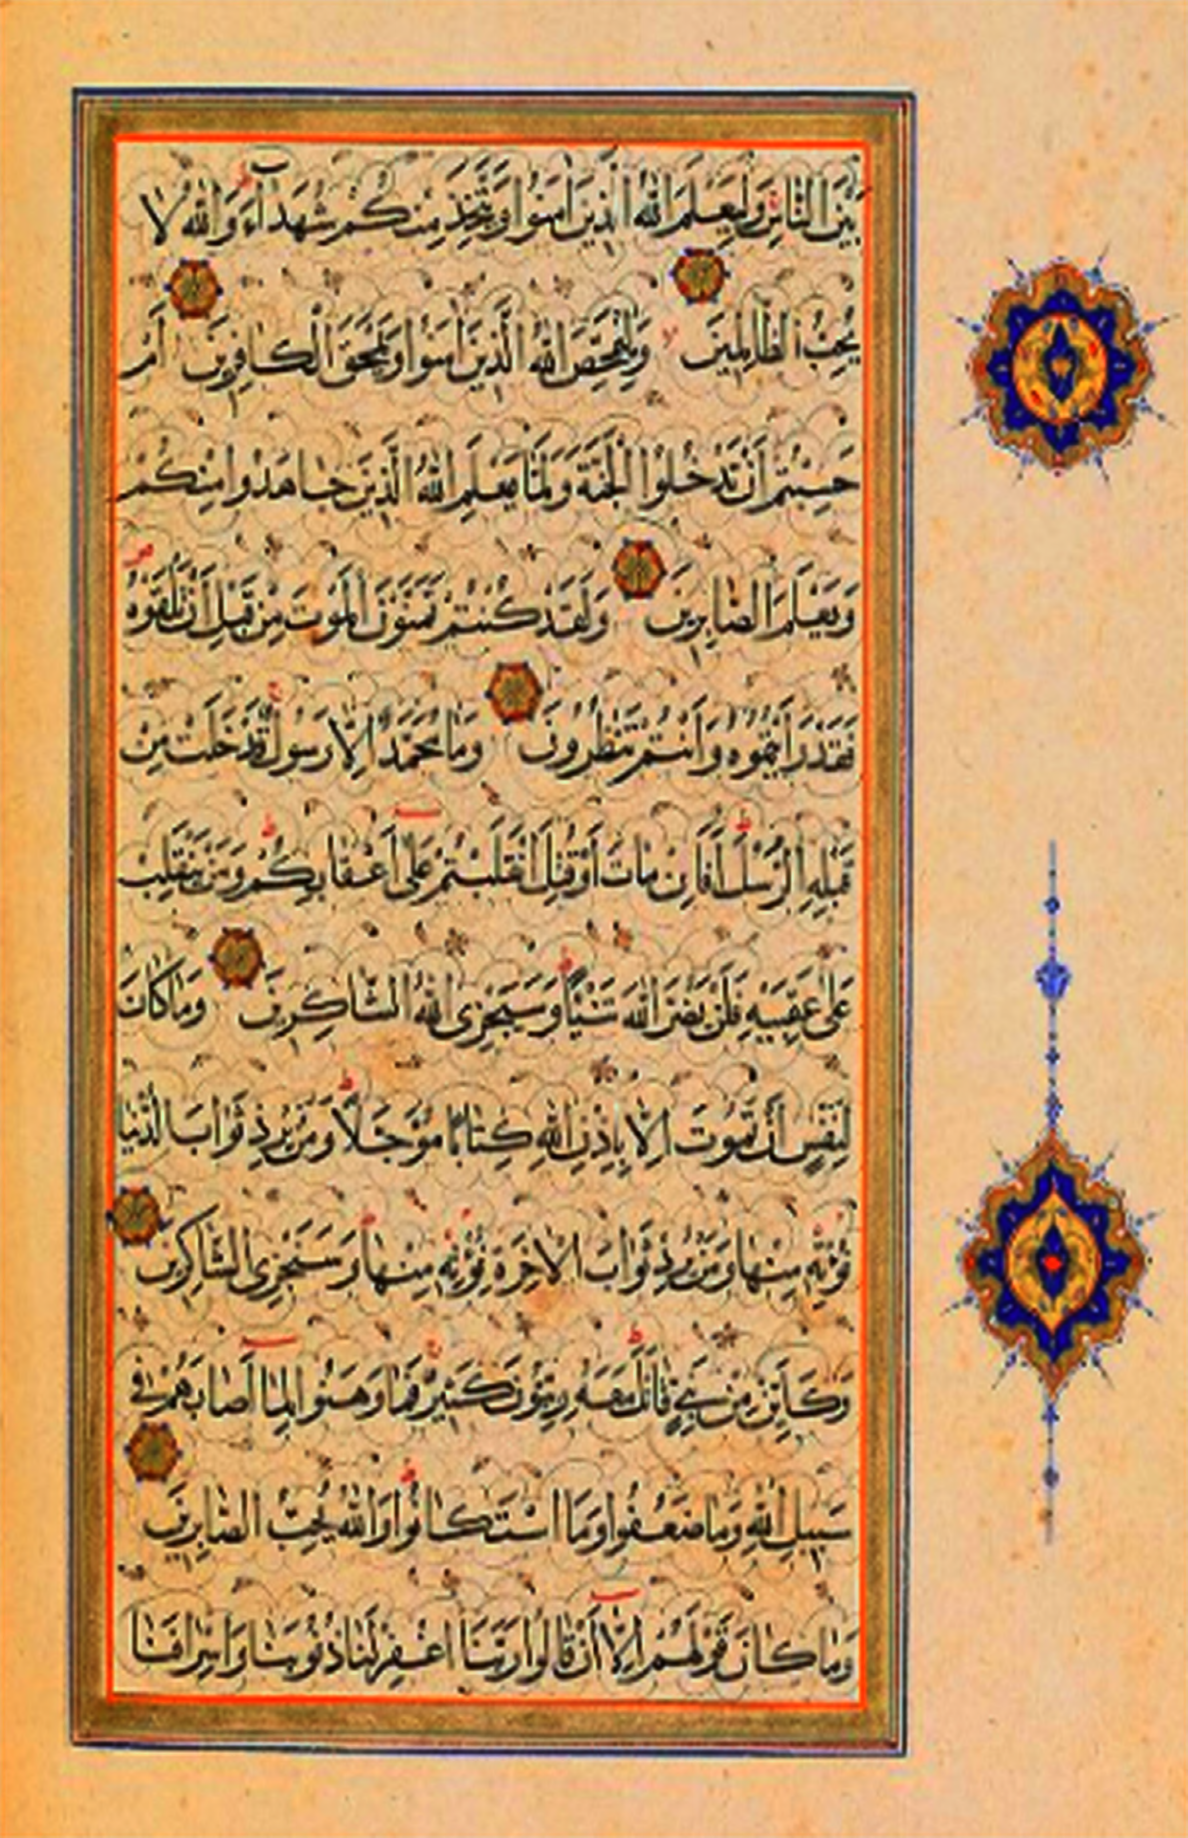 بَيْنَ النَّاسِ وَلِيَعْلَمَ اللَّهُ الَّذِينَ آمَنُوا وَيَتَّخِذَ مِنْكُمْ شُهَدَاءَ وَاللَّهُ لَا
يُحِبُّ الظَّالِمِينَ وَلِيُمَحِّصَ اللَّهُ الَّذِينَ آمَنُوا وَيَمْحَقَ الْكَافِرِينَ أَمْ
حَسِبْتُمْ أَنْ تَدْخُلُوا الْجَنَّةَ وَلَمَّا يَعْلَمِ اللَّهُ الَّذِينَ جَاهَدُوا مِنْكُمْ
وَيَعْلَمَ الصَّابِرِينَ وَلَقَدْ كُنْتُمْ تَمَنَّوْنَ الْمَوْتَ مِنْ قَبْلِ أَنْ تَلْقَوْهُ
فَقَدْ رَأَيْتُمُوهُ وَأَنْتُمْ تَنْظُرُونَ وَمَا مُحَمَّدٌ إِلَّا رَسُولٌ قَدْ خَلَتْ مِنْ
قَبْلِهِ الرُّسُلُ أَفَإِنْ مَاتَ أَوْ قُتِلَ انْقَلَبْتُمْ عَلَى أَعْقَابِكُمْ وَمَنْ يَنْقَلِبْ
عَلَى عَقِبَيْهِ فَلَنْ يَضُرَّ اللَّهَ شَيْئًا وَسَيَجْزِي اللَّهُ الشَّاكِرِينَ وَمَا كَانَ
لِنَفْسٍ أَنْ تَمُوتَ إِلَّا بِإِذْنِ اللَّهِ كِتَابًا مُؤَجَّلًا وَمَنْ يُرِدْ ثَوَابَ الدُّنْيَا
نُؤْتِهِ مِنْهَا وَمَنْ يُرِدْ ثَوَابَ الْآخِرَةِ نُؤْتِهِ مِنْهَا وَسَنَجْزِي الشَّاكِرِينَ
وَكَأَيِّنْ مِنْ نَبِيٍّ قَاتَلَ مَعَهُ رِبِّيُّونَ كَثِيرٌ فَمَا وَهَنُوا لِمَا أَصَابَهُمْ فِي
سَبِيلِ اللَّهِ وَمَا ضَعُفُوا وَمَا اسْتَكَانُوا وَاللَّهُ يُحِبُّ الصَّابِرِينَ
وَمَا كَانَ قَوْلَهُمْ إِلَّا أَنْ قَالُوا رَبَّنَا اغْفِرْ لَنَا ذُنُوبَنَا وَإِسْرَافَنَا